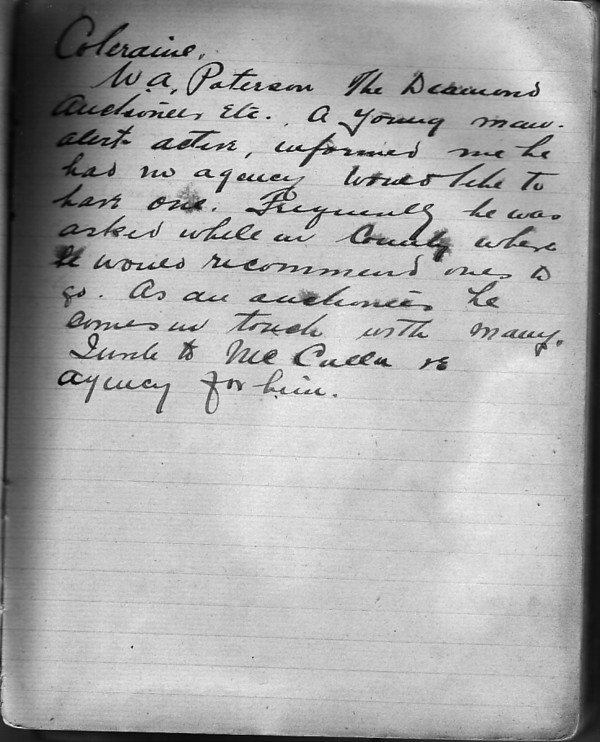 Coleraine,
W. A, Paterson The Diamond
Auctioneer Etc. A young man.
alert active, informed me he
had no agency would like to
have one. Frequently he was
asked while in County where
he would recommend ones to
go. As an auctioneer he
comes in touch with many.
to McCulln re
agency for him.